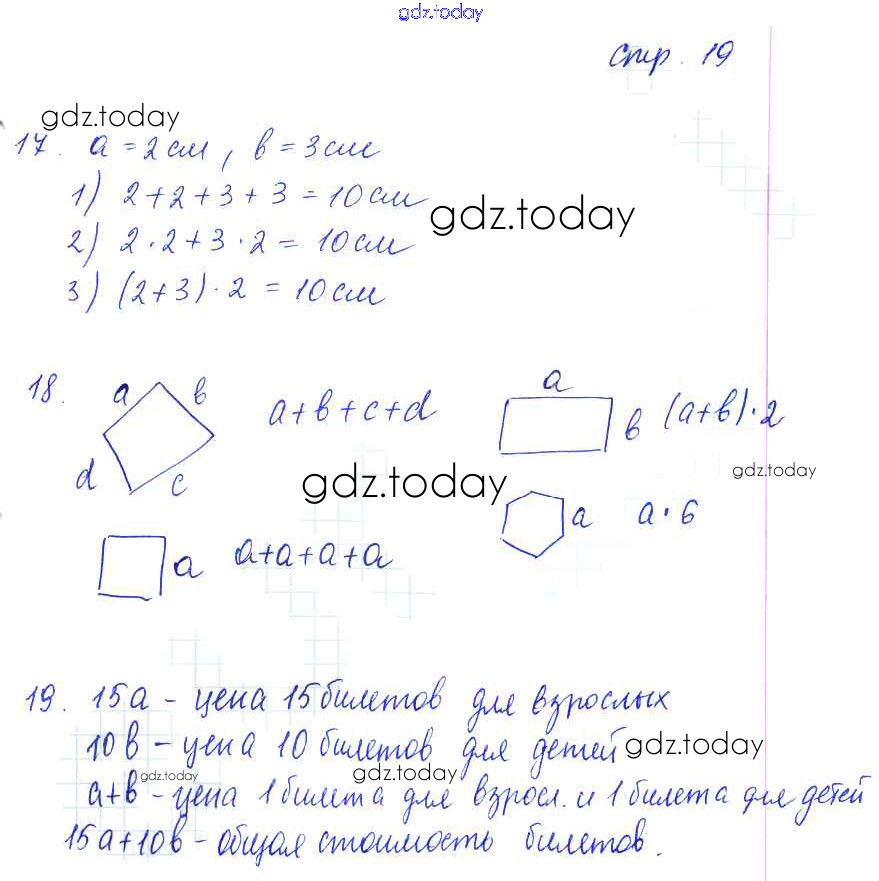 gdz.today
стр. 19
gdz.today
17. a = 2 см, b = 3 см
1) 2 + 2 + 3 + 3 = 10 см
gdz.today
2) 2 · 2 + 3 · 2 = 10 см
3) (2 + 3) · 2 = 10 см
18.
a b
d c
a + b + c + d
a
b
(a + b) · 2
gdz.today
gdz.today
a
a + a + a + a
a
a · 6
19. 15a – цена 15 билетов для взрослых
10b – цена 10 билетов для детей
gdz.today
gdz.today
gdz.today
a + b – цена 1 билета для взросл. и 1 билета для детей
15a + 10b – общая стоимость билетов.